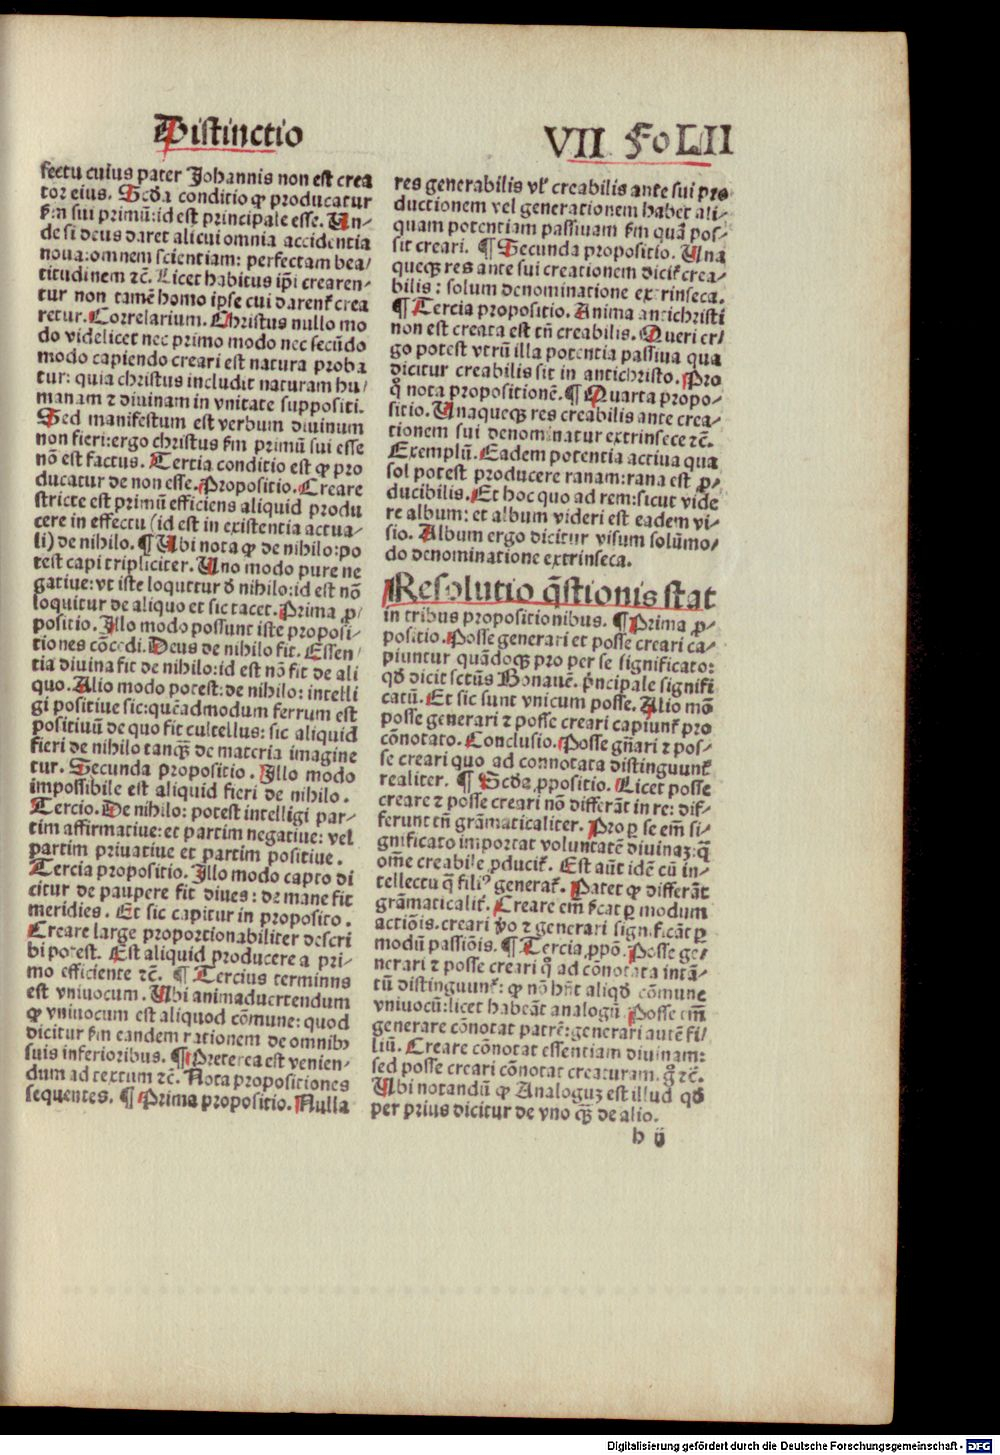 Distinctio
VII FoLII
fectu cuius pater Johannis non est crea
tor eius. Scd'a conditio ꝙ producatur
ẜm sui primū: id est principale esse. Un⸗
de si deus daret alicui omnia accidentia
noua: omnem scientiam: perfectam bea/
titudinem ⁊c̄. Licet habitus ip̄i crearen⸗
tur non tamē homo ipse cui darenť crea
retur. Correlarium. Christus nullo mo
do videlicet nec primo modo nec secūdo
modo capiendo creari est natura proba
tur: quia christus includit naturam hu/
manam ⁊ diuinam in vnitate suppositi.
Sed manifestum est verbum diuinum
non fieri: ergo christus ẜm primū sui esse
nō est factus. Tertia conditio est ꝙ pro
ducatur de non esse. Propositio. Creare
stricte est primū efficiens aliquid produ
cere in effectu (id est in existentia actua⸗
li) de nihilo. ¶ Ubi nota ꝙ de nihilo: po
test capi tripliciter. Uno modo pure ne
gatiue: vt iste loquitur d' nihilo: id est nō
loquitur de aliquo et sic tacet. Prima ꝓ/
positio. Illo modo possunt iste proposi⸗
tiones cōcedi. Deus de nihilo fit. Essen/
tia diuina fit de nihilo: id est nō fit de ali
quo. Alio modo potest: de nihilo: intelli
gi positiue sic: quēadmodum ferrum est
positiuū de quo fit cultellus: sic aliquid
fieri de nihilo tanqȝ de materia imagine
tur. Secunda propositio. Illo modo
impossibile est aliquid fieri de nihilo.
Tercio. De nihilo: potest intelligi par⸗
tim affirmatiue: et partim negatiue: vel
partim priuatiue et partim positiue.
Tercia propositio. Illo modo capto di
citur de paupere fit diues: de mane fit
meridies. Et sic capitur in proposito.
Creare large proportionabiliter descri
bi potest. Est aliquid producere a pri⸗
mo efficiente ⁊c̄. ¶ Tercius terminns
est vniuocum. Ubi animaduertendum
ꝙ vniuocum est aliquod cōmune: quod
dicitur ẜm eandem rationem de omnibꝰ
suis inferioribus. ¶ Preterea est venien⸗
dum ad textum ⁊c̄. Nota propositiones
sequentes. ¶ Prima propositio. Nulla
res generabilis vľ creabilis ante sui pro
ductionem vel generationem habet ali⸗
quam potentiam passiuam ẜm quā pos⸗
sit creari. ¶ Secunda propositio. Una
queqȝ res ante sui creationem diciť crea⸗
bilis: solum denominatione extrinseca.
¶ Tercia propositio. Anima antichristi
non est creata est tn̄ creabilis. Queri er/
go potest vtrū illa potentia passiua qua
dicitur creabilis sit in antichristo. Pro
q̊ nota propositionē. ¶ Quarta propo⸗
sitio. Unaqueqȝ res creabilis ante crea⸗
tionem sui denominatur extrinsece ⁊c̄.
Exemplū. Eadem potentia actiua qua
sol potest producere ranam: rana est ꝓ⸗
ducibilis. Et hoc quo ad rem: sicut vide
re album: et album videri est eadem vi⸗
sio. Album ergo dicitur visum solūmo/
do denominatione extrinseca.
Resolutio q̄stionis stat
in tribus propositionibus. ¶ Prima ꝓ⸗
positio. Posse generari et posse creari ca⸗
piuntur quādoqȝ pro per se significato:
qd' dicit sctūs Bonauē. p̄ncipale signifi
catū. Et sic sunt vnicum posse. Alio mō
posse generari ⁊ posse creari capiunť pro
cōnotato. Conclusio. Posse gn̄ari ⁊ pos⸗
se creari quo ad connotata distinguunť
realiter. ¶ Scd'a ꝓpositio. Licet posse
creare ⁊ posse creari nō differāt in re: dif⸗
ferunt tn̄ grāmaticaliter. Pro ꝑ se em̄ si⸗
gnificato importat voluntatē diuinaȝ: q̄
om̄e creabile ꝓduciť. Est aūt idē cū in⸗
tellectu q̄ filiꝰ generať. Patet ꝙ differāt
grāmaticaliť. Creare em̄ ẜcat ꝑ modum
actiōis. creari ṽo ⁊ generari significāt ꝑ
modū passiōis. ¶ Tercia ꝓpō. Posse ge/
nerari ⁊ posse creari q̊ ad cōnotata intā⸗
tū distinguunť: ꝙ nō hn̄t aliqd' cōmune
vniuocū: licet habeāt analogū. Posse em̄
generare cōnotat patrē: generari autē fi/
liū. Creare cōnotat essentiam diuinam:
sed posse creari cōnotat creaturam. g̊ ⁊c̄.
Ubi notandū ꝙ Analoguȝ est illud qd'
per prius dicitur de vno qȝ de alio.
h ij
Digitalisierung gefördert durch die Deutsche Forschungsgemeinschaft - DFG